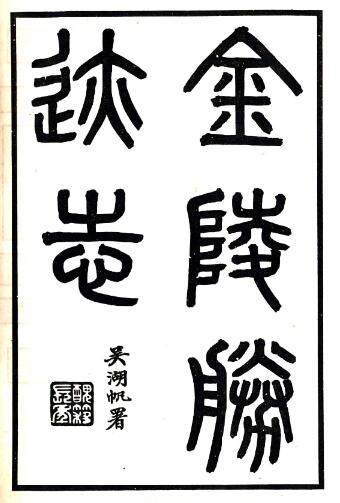 金陵勝
迹志
吳湖帆署